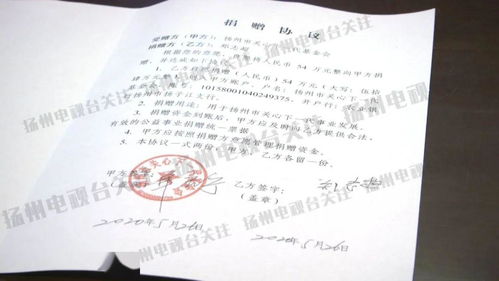 捐赠协议
受赠方（甲方）：扬州市关心下一代基金会
捐赠方（乙方）：郑志超
54万元整向甲方捐
赠，并达成如下协议
1、乙方自愿捐赠（人民币）54万元（大写：伍拾
肆万元整）
账号：10158001040249375，开户行：农业银
行扬州市扬子江支行。
2、捐赠用途：用于扬州市关心下一代事业发展。
3、捐赠资金到账后，甲方应及时向乙方提供合法，
有效的公益事业捐赠统一票据。
4、甲方应按照捐赠方意愿管理捐赠资金。
5、本协议一式两份，甲方、乙方各留一份。
甲方签字：
（盖章）
乙方签字：
（盖章）
2020年5月26日
2020年5月26日
扬州电视台关注
扬州电视台关注
扬州电视台关注
扬州电视台关注